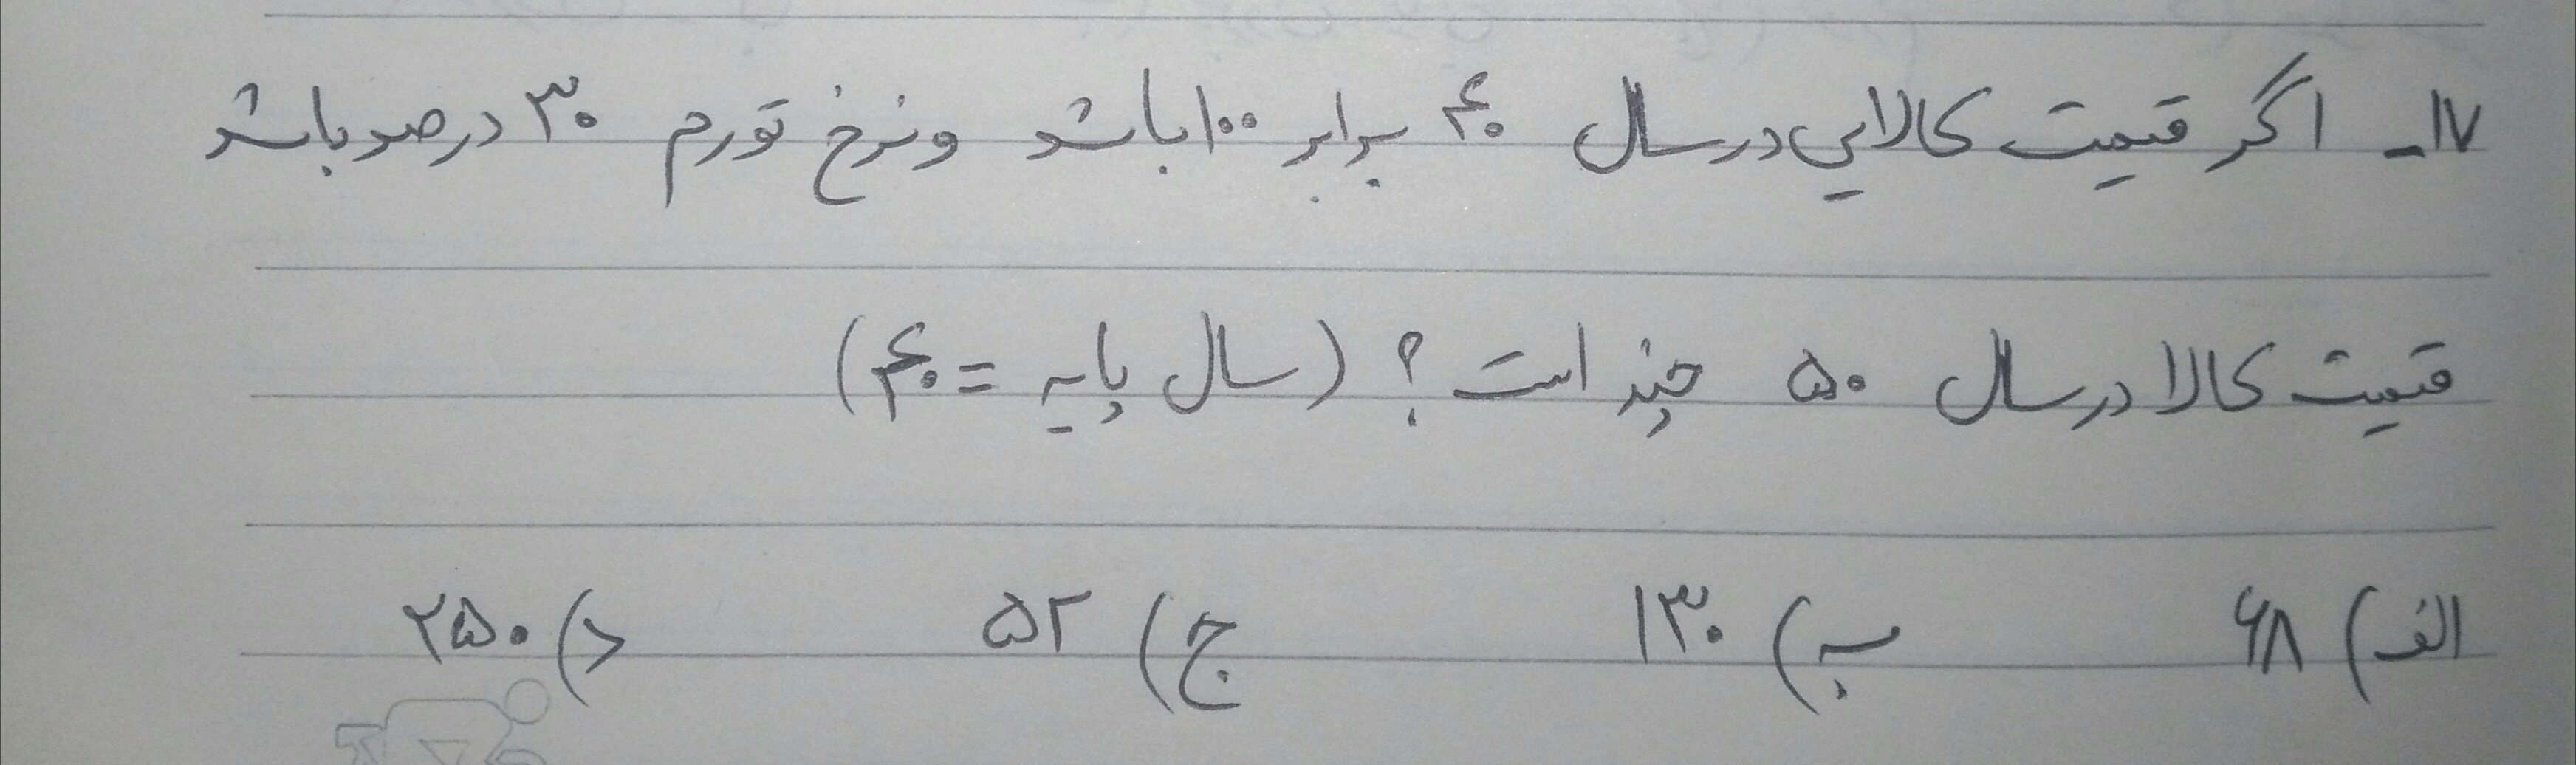 ۱۷- اگر قیمت کالایی در سال ۴۰ برابر ۱۰۰ باشد و نرخ تورم ۳۰ درصد باشد
قیمت کالا در سال ۵۰ چند است؟ (سال پایه = ۴۰)
الف) ۶۸ ب) ۱۳۰ ج) ۵۲ د) ۲۵۰